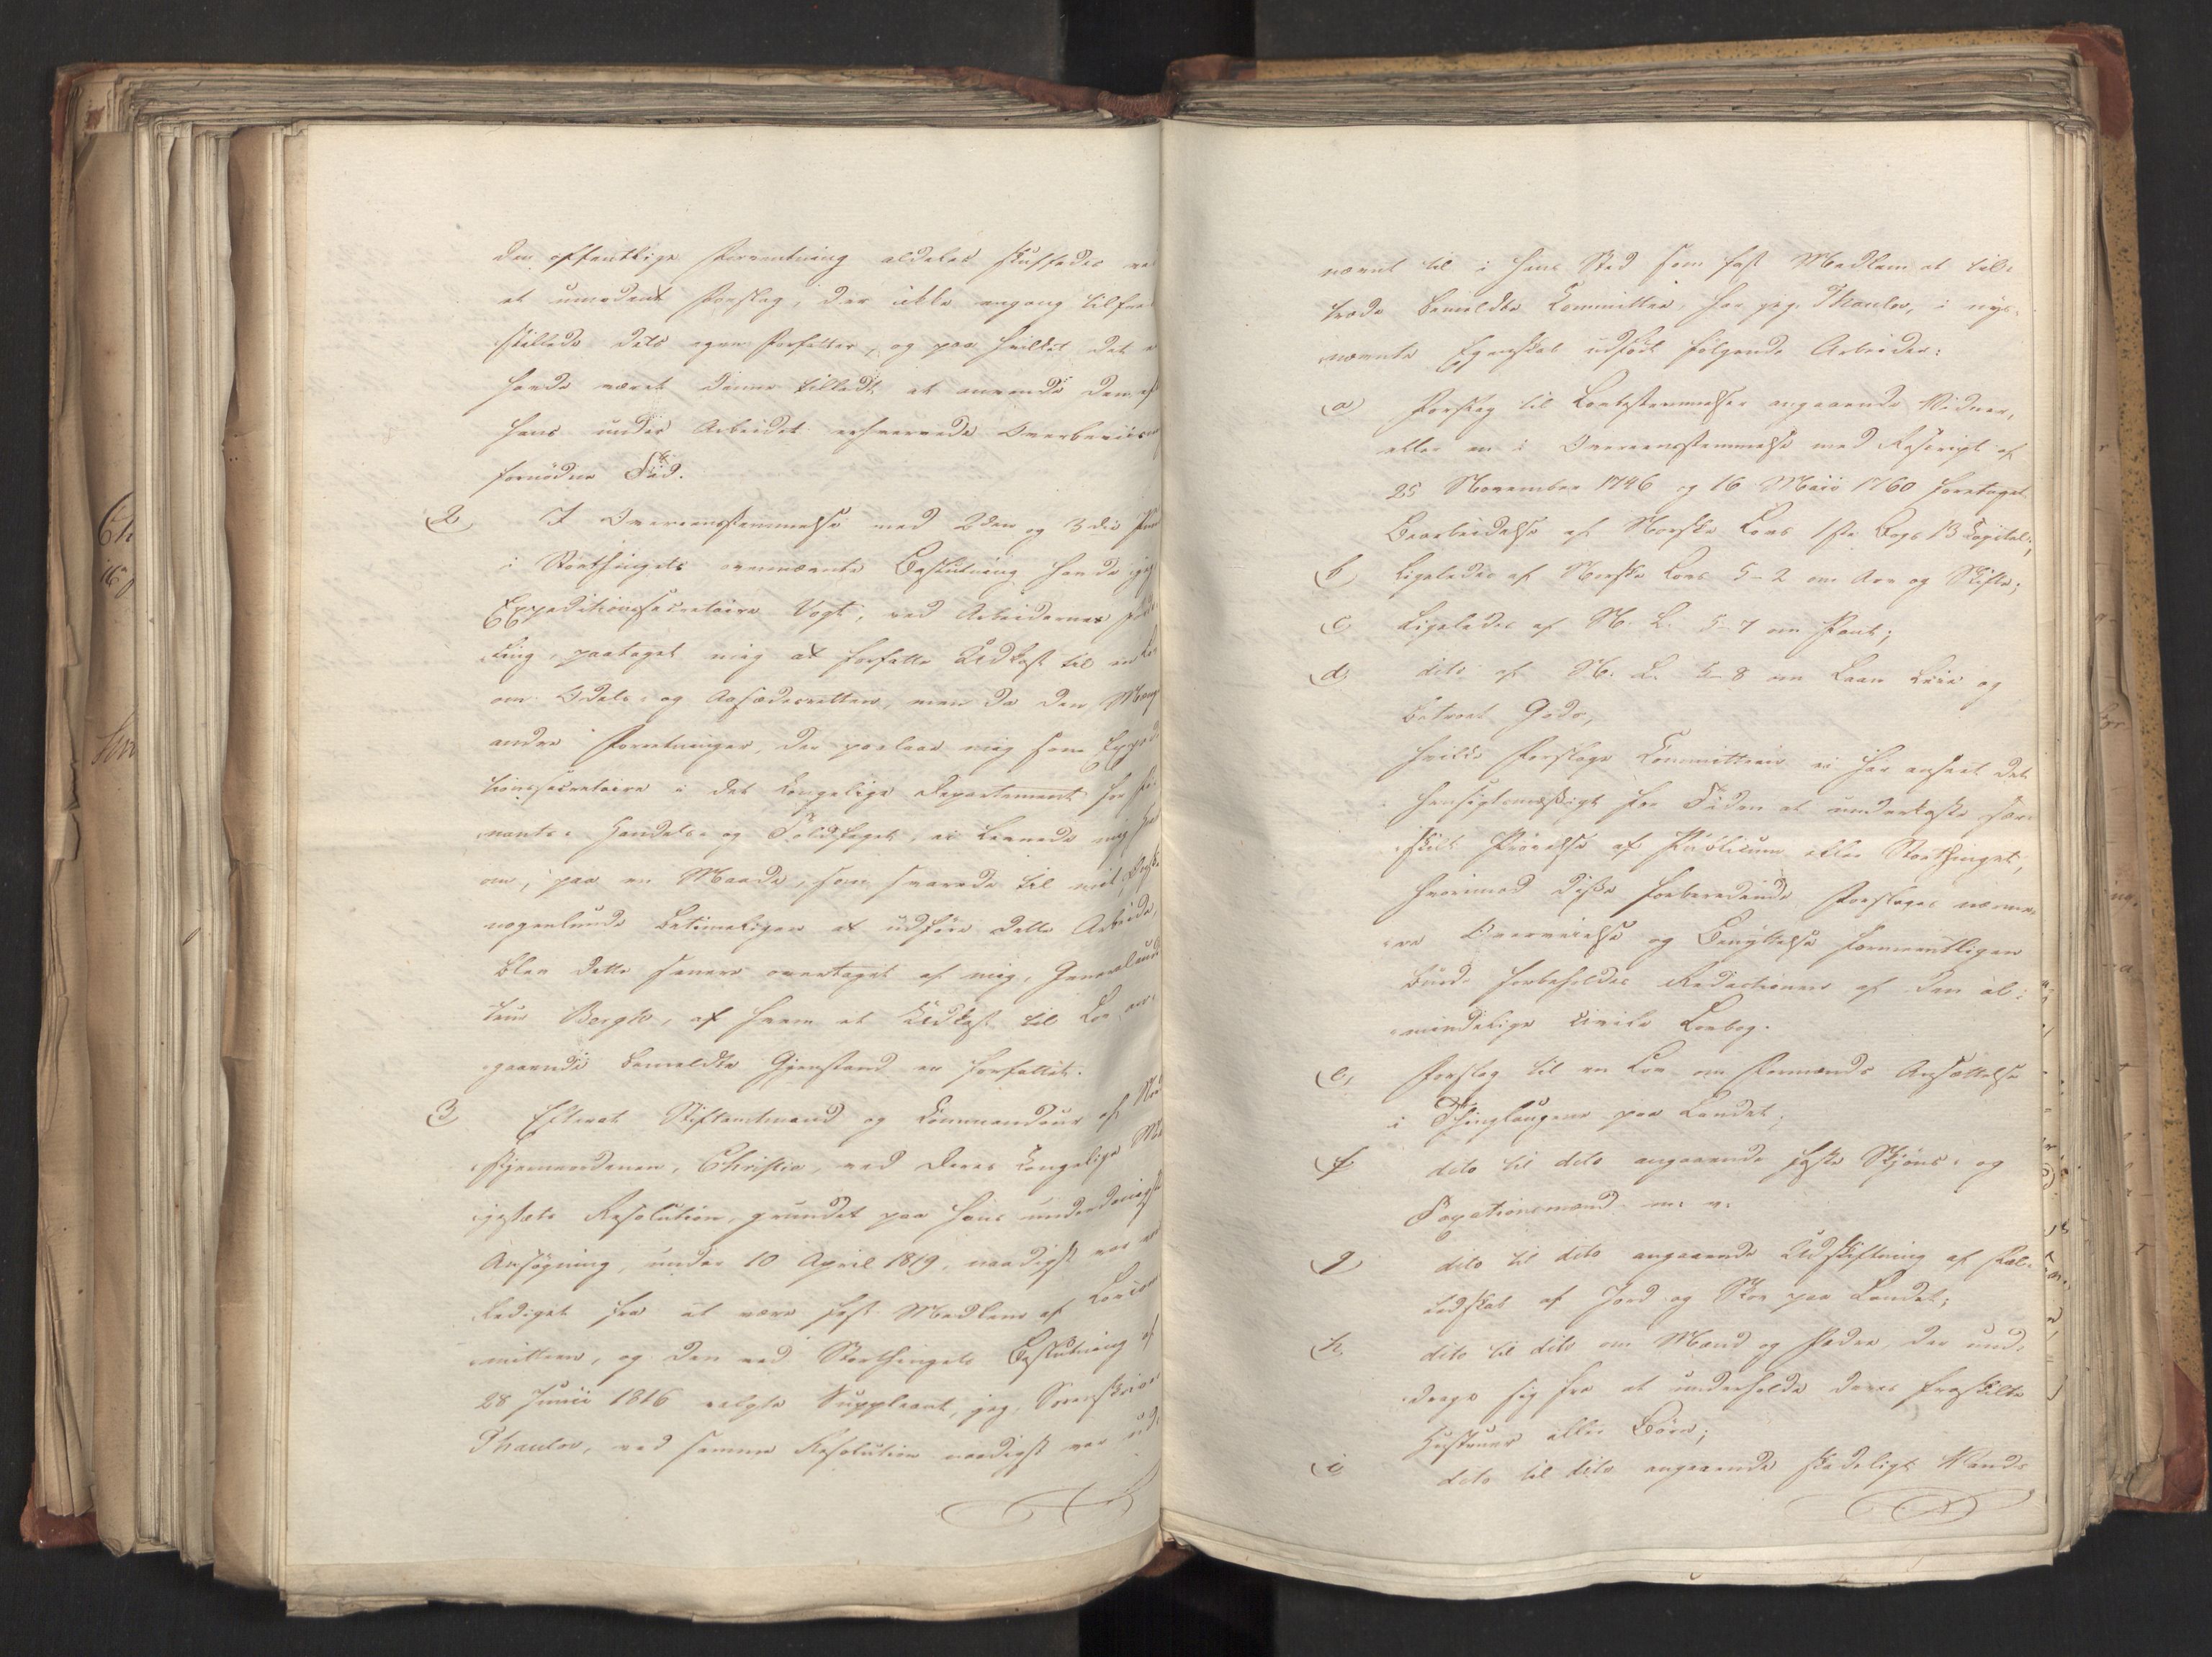 den offentlige Forventning aldeles skuffedes ve
et umodent Forslag, der ikke engang tilfreds
stillede dets egen Forfatter, og paa hvilket det ei
havde været denne tilladt at anvende den ef
hans under Arbeidet erhvervede Overbeviisn
fornødne Tid.
2) I Overeensstemmelse med 2den og 3die Post
i Storthingets ovennævnte Beslutning havde jeg
Expeditionssecretaire Vogt, ved Arbeidernes forde
ling, paataget mig at forfatte Udkast til en Lov
om Odels- og Aasædesretten, men da den Mængde
andre Forretninger, der paalaae mig som Expedi
tionssecretaire i det Kongelige Departement for Fi
nants- Handels- og Toldfaget, ei levnede mig Haab
om, paa en Maade, som svarede til mit Ønske
nogenlunde betimeligen at udføre dette Arbeide,
blev dette senere overtaget af mig, Generalaudi
teur Bergh, af hvem et Udkast til Lov an-
gaaende bemeldte Gjenstand er forfattet.
3) Efterat Stiftamtmand og Commandeur af Nord
stjerneordenen, Christie, ved Deres Kongelige Ma
jestæts Resolution, grundet paa hans underdanigste
Ansøgning, under 10 April 1819, naadigst var en
lediget fra at være fast Medlem af Lovcom
mitteen, og den ved Storthingets Beslutning af
28 Junii 1816 valgte Suppleant, jeg, Sorenskriver
Thaulow, ved samme Resolution naadigst var ud-
nævnt til i hans Sted som fast Medlem at til-
træde bemeldte Committee, har jeg, Thaulow, i nys-
nævnte Egenskab udført følgende Arbeider:
a) Forslag til Lovbestemmelser angaaende Vidner,
eller en i Overeensstemmelse med Rescript af
25 November 1746 og 16 Maii 1760 foretaget
Bearbeidelse af Norske Lovs 1ste Bogs 13 Capitel;
b) Ligeledes af Norske Lovs 5-2 om Arv og Skifte;
c) Ligeledes af N. L. 5-7 om Pant;
d) dito af N. L. 5-8 om Laan Leie og
betroet Gods,
hvilke Forslage Committeen ei har anseet det
hensigtsmæssigt for Tiden at underkaste sær-
skilt Prøvelse af Publicum eller Storthinget,
hvorimod disse forberedende Forslages nærme-
re Overveielse og Benyttelse formeentligen
burde forbeholdes Redactionen af den al-
mindelige civile Lovbog.
e) Forslag til en Lov om Formænds Ansættelse
i Thinglaugene paa Landet;
f) dito til dito angaaende faste Skjøns- og
Taxationsmænd m. v.
g) dito til dito angaaende Udskiftning af Fæl-
ledskab af Jord og Skov paa Landet;
h) dito til dito om Mænd og Fædre, der und-
drage sig fra at underholde deres fraskilte
Hustruer eller Børn;
i) dito til dito angaaende skadeligt Vands